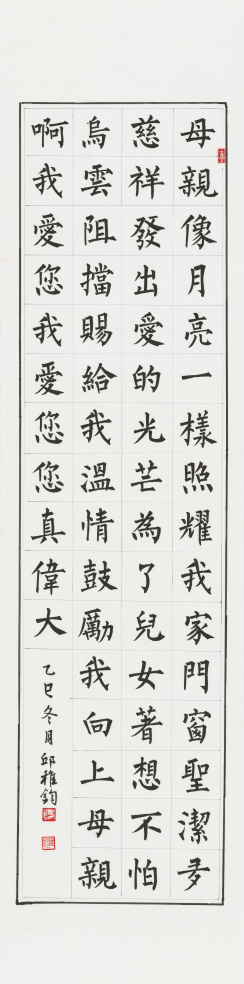 母親像月亮一樣照耀我家門窗聖潔多
慈祥發出愛的光芒為了兒女著想不怕
烏雲阻擋賜給我溫情鼓勵我向上母親
啊我愛您我愛您您真偉大
乙巳冬月邱稚鈞